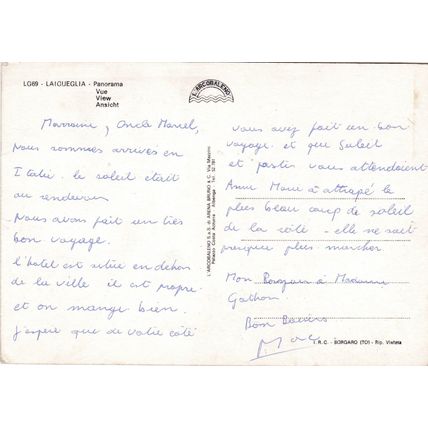 LG69 - LAIGUEGLIA - Panorama
Vue
View
Ansicht
L'ARCOBALENO
Marraine, Oncle Marcel,
Nous sommes arrivés en
Italie. le soleil était
au rendevous
Nous avons fait un très
bon voyage.
l'hotel est située en dehors
de la ville il est propre.
et on mange bien.
j'espère que de votre côté
L'ARCOBALENO S.a.S. di ARENA BRUNO & C. Via Mazzini
Palazzo Costa Azzurra - Albenga - Tel. 52 781
vous avez fait un bon
voyage. et que Soleil
et pastis vous attendaient
Anne Marie à attrapé le
plus beau coup de soleil
de la côte - elle ne sait
presque plus marcher
Mon Bonjour à Madame
Gathon.
Bon Baisers
Marc
I.R.C. - BORGARO (TO) - Rip. Vietata